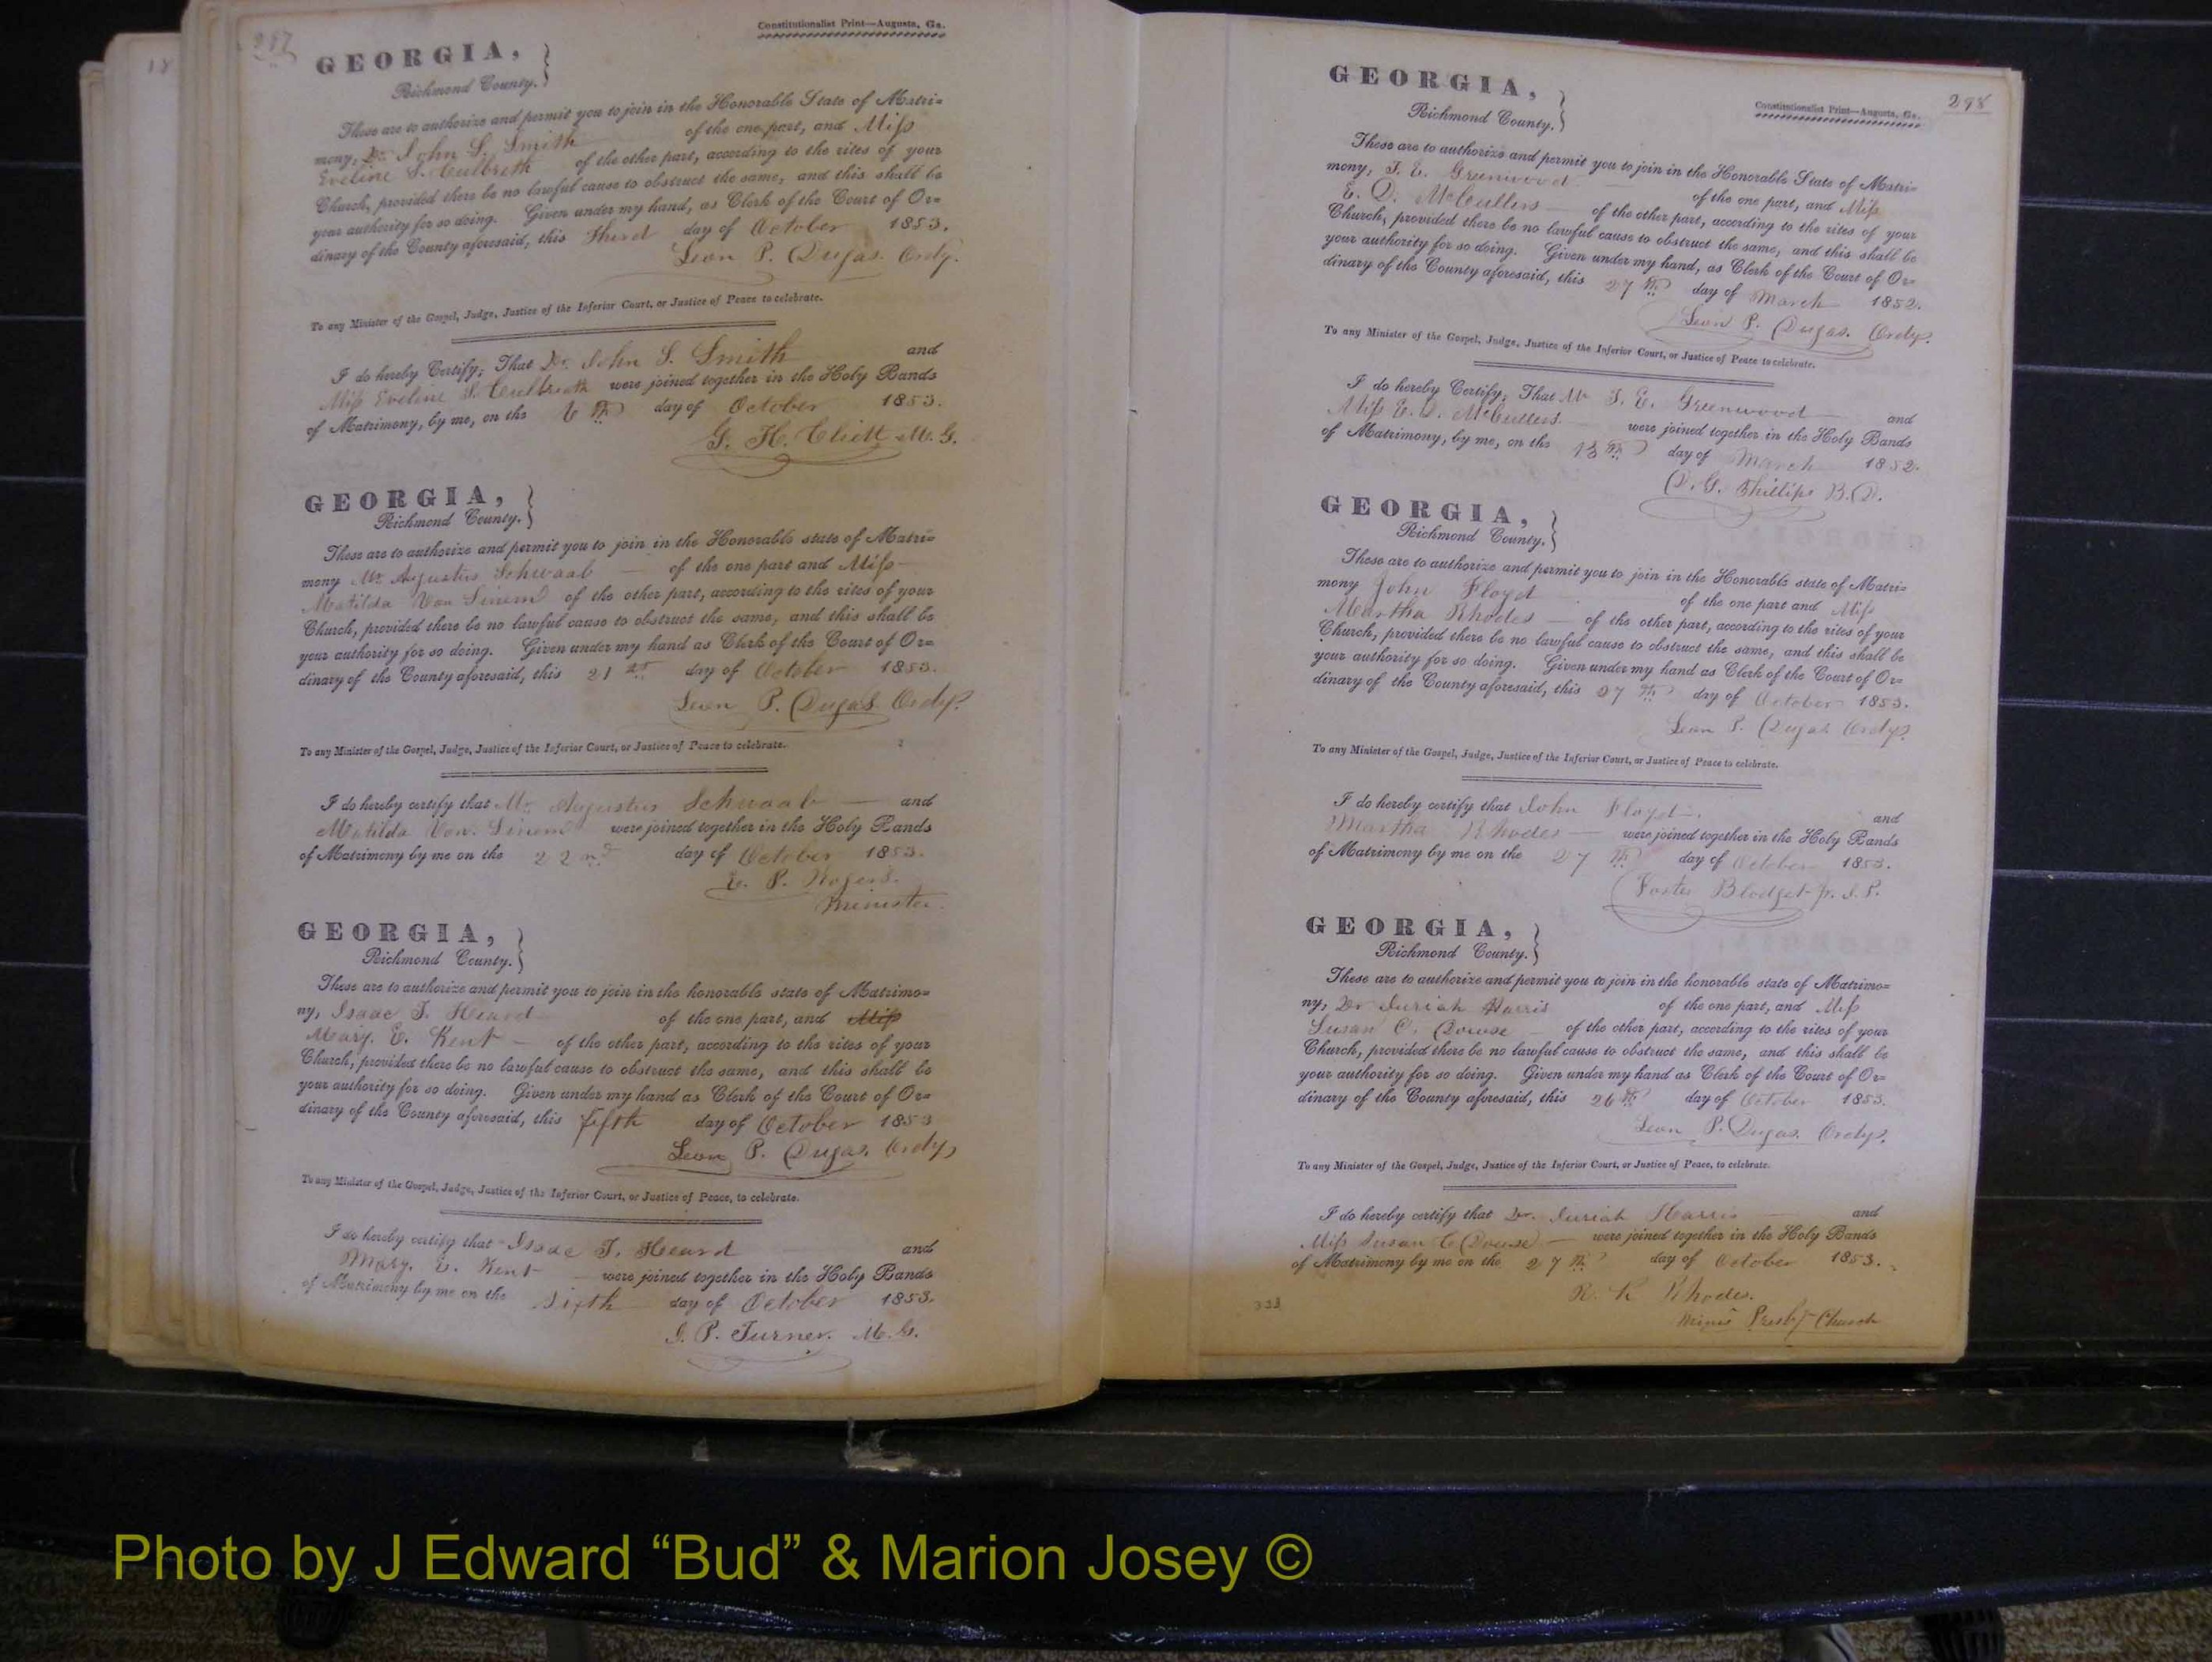 297
Constitutionalist Print—Augusta, Ga.
GEORGIA,
Richmond County.
These are to authorize and permit you to join in the Honorable State of Matri=
mony, Dr. John S. Smith of the one part, and Miss
Eveline S. Culbreth of the other part, according to the rites of your
Church, provided there be no lawful cause to obstruct the same, and this shall be
your authority for so doing. Given under my hand, as Clerk of the Court of Or=
dinary of the County aforesaid, this Third day of October 1853.
Leon P. Dugas. Ordy.
To any Minister of the Gospel, Judge, Justice of the Inferior Court, or Justice of Peace to celebrate.
I do hereby Certify, That Dr. John S. Smith and
Miss Eveline S. Culbreth were joined together in the Holy Bands
of Matrimony, by me, on the 6th day of October 1853.
G. H. Cliett M. G.
GEORGIA,
Richmond County.
These are to authorize and permit you to join in the Honorable state of Matri=
mony Mr. Augustus Schwaab of the one part and Miss
Matilda Von of the other part, according to the rites of your
Church, provided there be no lawful cause to obstruct the same, and this shall be
your authority for so doing. Given under my hand as Clerk of the Court of Or=
dinary of the County aforesaid, this 21st day of October 1853.
Leon P. Dugas. Ordy.
To any Minister of the Gospel, Judge, Justice of the Inferior Court, or Justice of Peace to celebrate.
I do hereby certify that Mr. Augustus Schwaab and
Matilda Von. were joined together in the Holy Bands
of Matrimony by me on the 22nd day of October 1853.
E. P. Rogers.
Minister.
GEORGIA,
Richmond County.
These are to authorize and permit you to join in the honorable state of Matrimo=
ny, Isaac T. Heard of the one part, and Miss
Mary. E. Kent of the other part, according to the rites of your
Church, provided there be no lawful cause to obstruct the same, and this shall be
your authority for so doing. Given under my hand as Clerk of the Court of Or=
dinary of the County aforesaid, this fifth day of October 1853
Leon P. Dugas. Ordy
To any Minister of the Gospel, Judge, Justice of the Inferior Court, or Justice of Peace, to celebrate.
I do hereby certify that Isaac T. Heard and
Mary. E. Kent were joined together in the Holy Bands
of Matrimony by me on the Sixth day of October 1853.
J. P. Turner. M. G.
298
Constitutionalist Print—Augusta, Ga.
GEORGIA,
Richmond County.
These are to authorize and permit you to join in the Honorable State of Matri=
mony, T. E. Greenwood of the one part, and Miss
E. D. McCullers of the other part, according to the rites of your
Church, provided there be no lawful cause to obstruct the same, and this shall be
your authority for so doing. Given under my hand, as Clerk of the Court of Or=
dinary of the County aforesaid, this 27th day of March 1852.
Leon P. Dugas. Ordy.
To any Minister of the Gospel, Judge, Justice of the Inferior Court, or Justice of Peace to celebrate.
I do hereby Certify, That Mr T. E. Greenwood and
Miss E. D. McCullers. were joined together in the Holy Bands
of Matrimony, by me, on the day of March 1852.
D. G. Phillips B. D.
GEORGIA,
Richmond County.
These are to authorize and permit you to join in the Honorable state of Matri=
mony John Floyd of the one part and Miss
Martha Rhodes of the other part, according to the rites of your
Church, provided there be no lawful cause to obstruct the same, and this shall be
your authority for so doing. Given under my hand as Clerk of the Court of Or=
dinary of the County aforesaid, this 27th day of October 1853.
Leon P. Dugas Ordy.
To any Minister of the Gospel, Judge, Justice of the Inferior Court, or Justice of Peace to celebrate.
I do hereby certify that John Floyd. and
Martha Rhodes were joined together in the Holy Bands
of Matrimony by me on the 27th day of October 1853.
Foster Blodget Jr. J. P.
GEORGIA,
Richmond County.
These are to authorize and permit you to join in the honorable state of Matrimo=
ny, Dr Juriah Harris of the one part, and Miss
Susan C. Dowse of the other part, according to the rites of your
Church, provided there be no lawful cause to obstruct the same, and this shall be
your authority for so doing. Given under my hand as Clerk of the Court of Or=
dinary of the County aforesaid, this 26th day of October 1853.
Leon P. Dugas. Ordy.
To any Minister of the Gospel, Judge, Justice of the Inferior Court, or Justice of Peace, to celebrate.
I do hereby certify that Dr. Juriah Harris and
Miss Susan C Dowse were joined together in the Holy Bands
of Matrimony by me on the 27th day of October 1853.
R. K Rhodes.
Presby Church
Photo by J Edward “Bud” & Marion Josey ©